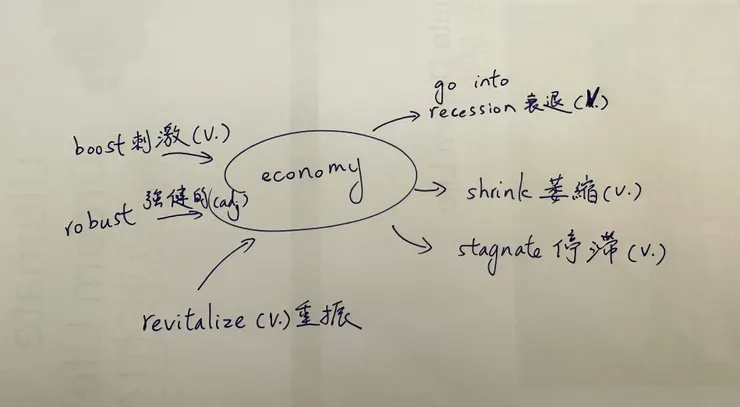 go into
recession 衰退 (V.)
boost 刺激 (V.)
economy
robust 強健的 (adj)
shrink 萎縮 (v.)
stagnate 停滯 (v.)
revitalize (v.) 重振